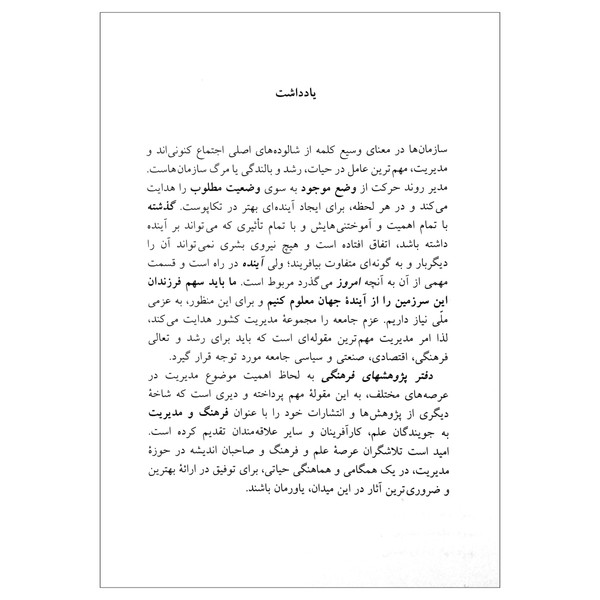 یادداشت
سازمان‌ها در معنای وسیع کلمه از شالوده‌های اصلی اجتماع کنونی‌اند و
مدیریت، مهم‌ترین عامل در حیات، رشد و بالندگی یا مرگ سازمان‌هاست.
مدیر روند حرکت از وضع موجود به سوی وضعیت مطلوب را هدایت
می‌کند و در هر لحظه، برای ایجاد آینده‌ای بهتر در تکاپوست. گذشته
با تمام اهمیت و آموختنی‌هایش و با تمام تأثیری که می‌تواند بر آینده
داشته باشد، اتفاق افتاده است و هیچ نیروی بشری نمی‌تواند آن را
دیگربار و به گونه‌ای متفاوت بیافریند؛ ولی آینده در راه است و قسمت
مهمی از آن به آنچه امروز می‌گذرد مربوط است. ما باید سهم فرزندان
این سرزمین را از آیندهٔ جهان معلوم کنیم و برای این منظور، به عزمی
ملّی نیاز داریم. عزم جامعه را مجموعهٔ مدیریت کشور هدایت می‌کند،
لذا امر مدیریت مهم‌ترین مقوله‌ای است که باید برای رشد و تعالی
فرهنگی، اقتصادی، صنعتی و سیاسی جامعه مورد توجه قرار گیرد.
دفتر پژوهشهای فرهنگی به لحاظ اهمیت موضوع مدیریت در
عرصه‌های مختلف، به این مقولهٔ مهم پرداخته و دیری است که شاخهٔ
دیگری از پژوهش‌ها و انتشارات خود را با عنوان فرهنگ و مدیریت
به جویندگان علم، کارآفرینان و سایر علاقه‌مندان تقدیم کرده است.
امید است تلاشگران عرصهٔ علم و فرهنگ و صاحبان اندیشه در حوزهٔ
مدیریت، در یک همگامی و هماهنگی حیاتی، برای توفیق در ارائهٔ بهترین
و ضروری‌ترین آثار در این میدان، یاورمان باشند.